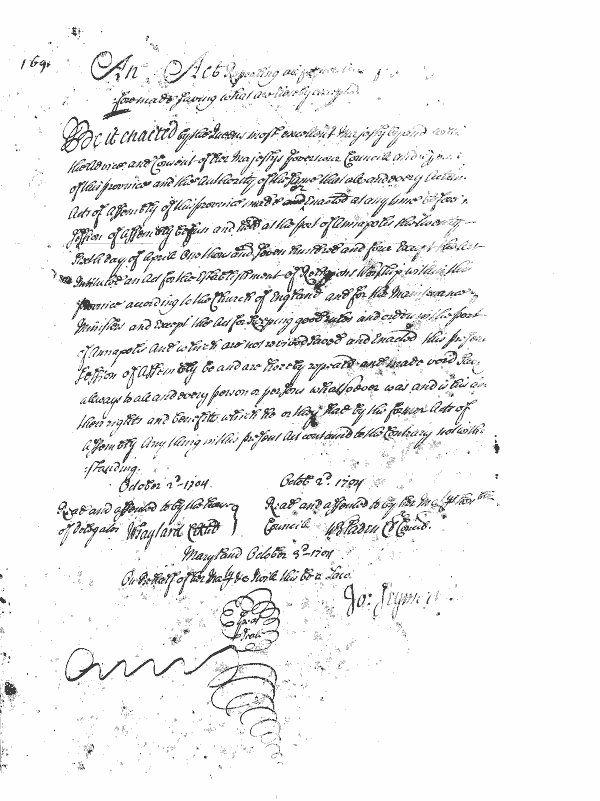 169
An Act Repealing all former
fore made saving what are hereby excepted
Be it enacted by the Queens most excellent Majesty by and with
the Advice and Consent of her Majestys Governour Councill and
of this province and the Authority of the same that all and every
Acts of Assembly of this province made and Enacted at any time before
Session of Assembly begun and held at the port of Annapolis the twenty
day of Aprill One thousand seven hundred and four Except the Act
Intituled an Act for the Establishment of Religious Worship within this
province according to the Church of England and for the Maintenance
Ministers and Except the Act for keeping good rules and orders in the port
of Annapolis And which are not revived and Enacted this present
Session of Assembly be and are hereby repeald and made void
always to all and every person or persons whatsoever was and is
their rights and benefits which he or they had by the former Acts of
Assembly Any thing in this present Act contained to the Contrary notwith
standing.
October 3d. 1704. Octobr 2d. 1704
Read and assented to by the house Read and assented to by her
of delegates W Taylard Councill W Bladen
Maryland October 3d. 1704
On behalf of her Maty &c I will this be a Law.
Jo: Seymour